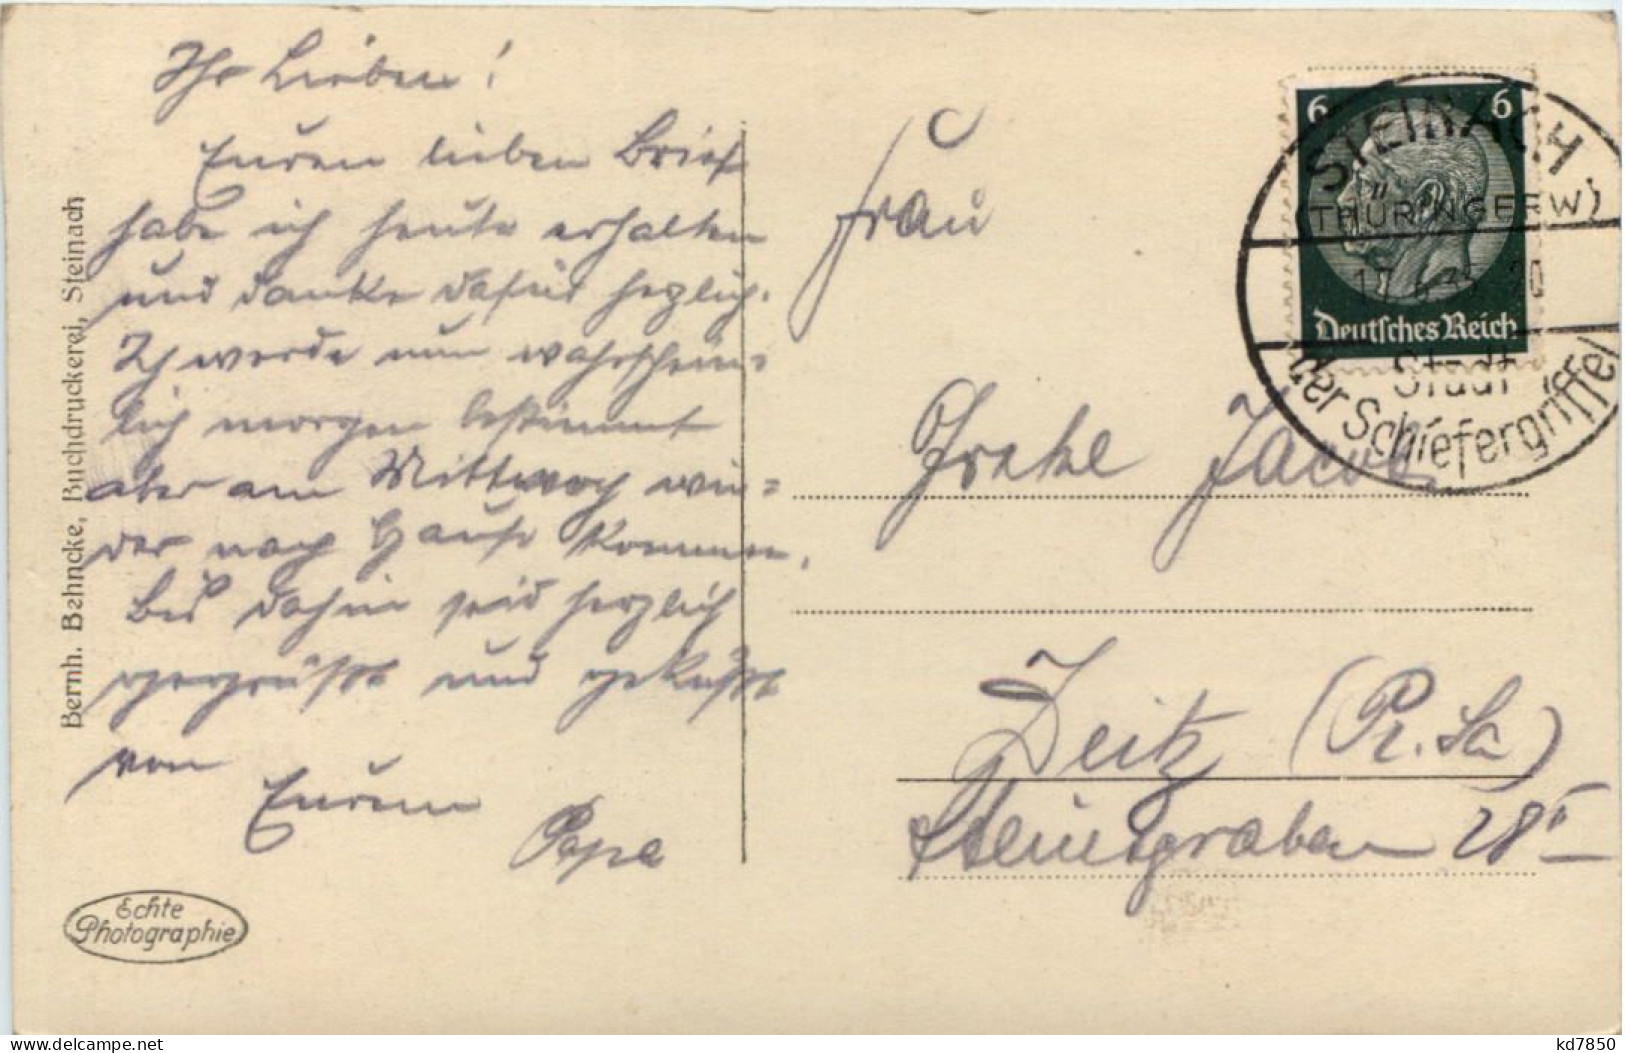 Ihr Lieben!
Euren lieben Brief
habe ich heute erhalten
und danke dafür herzlich.
Ich werde nun wahrschein=
lich morgen bestimmt
aber am Mittwoch wie=
der nach Hause kommen.
Bis dahin seid herzlich
gegrüßt und geküßt
von
Eurem
Papa
Bernh. Behncke, Buchdruckerei, Steinach
Echte
Photographie
6 6
Deutsches Reich
STEINACH
(THÜRINGERW)
17.6.35. 20
Stadt
der Schiefergriffel
Frau
Jacob
Zeitz (Pr. Sa)
Steinsgraben 28 II
kd7850